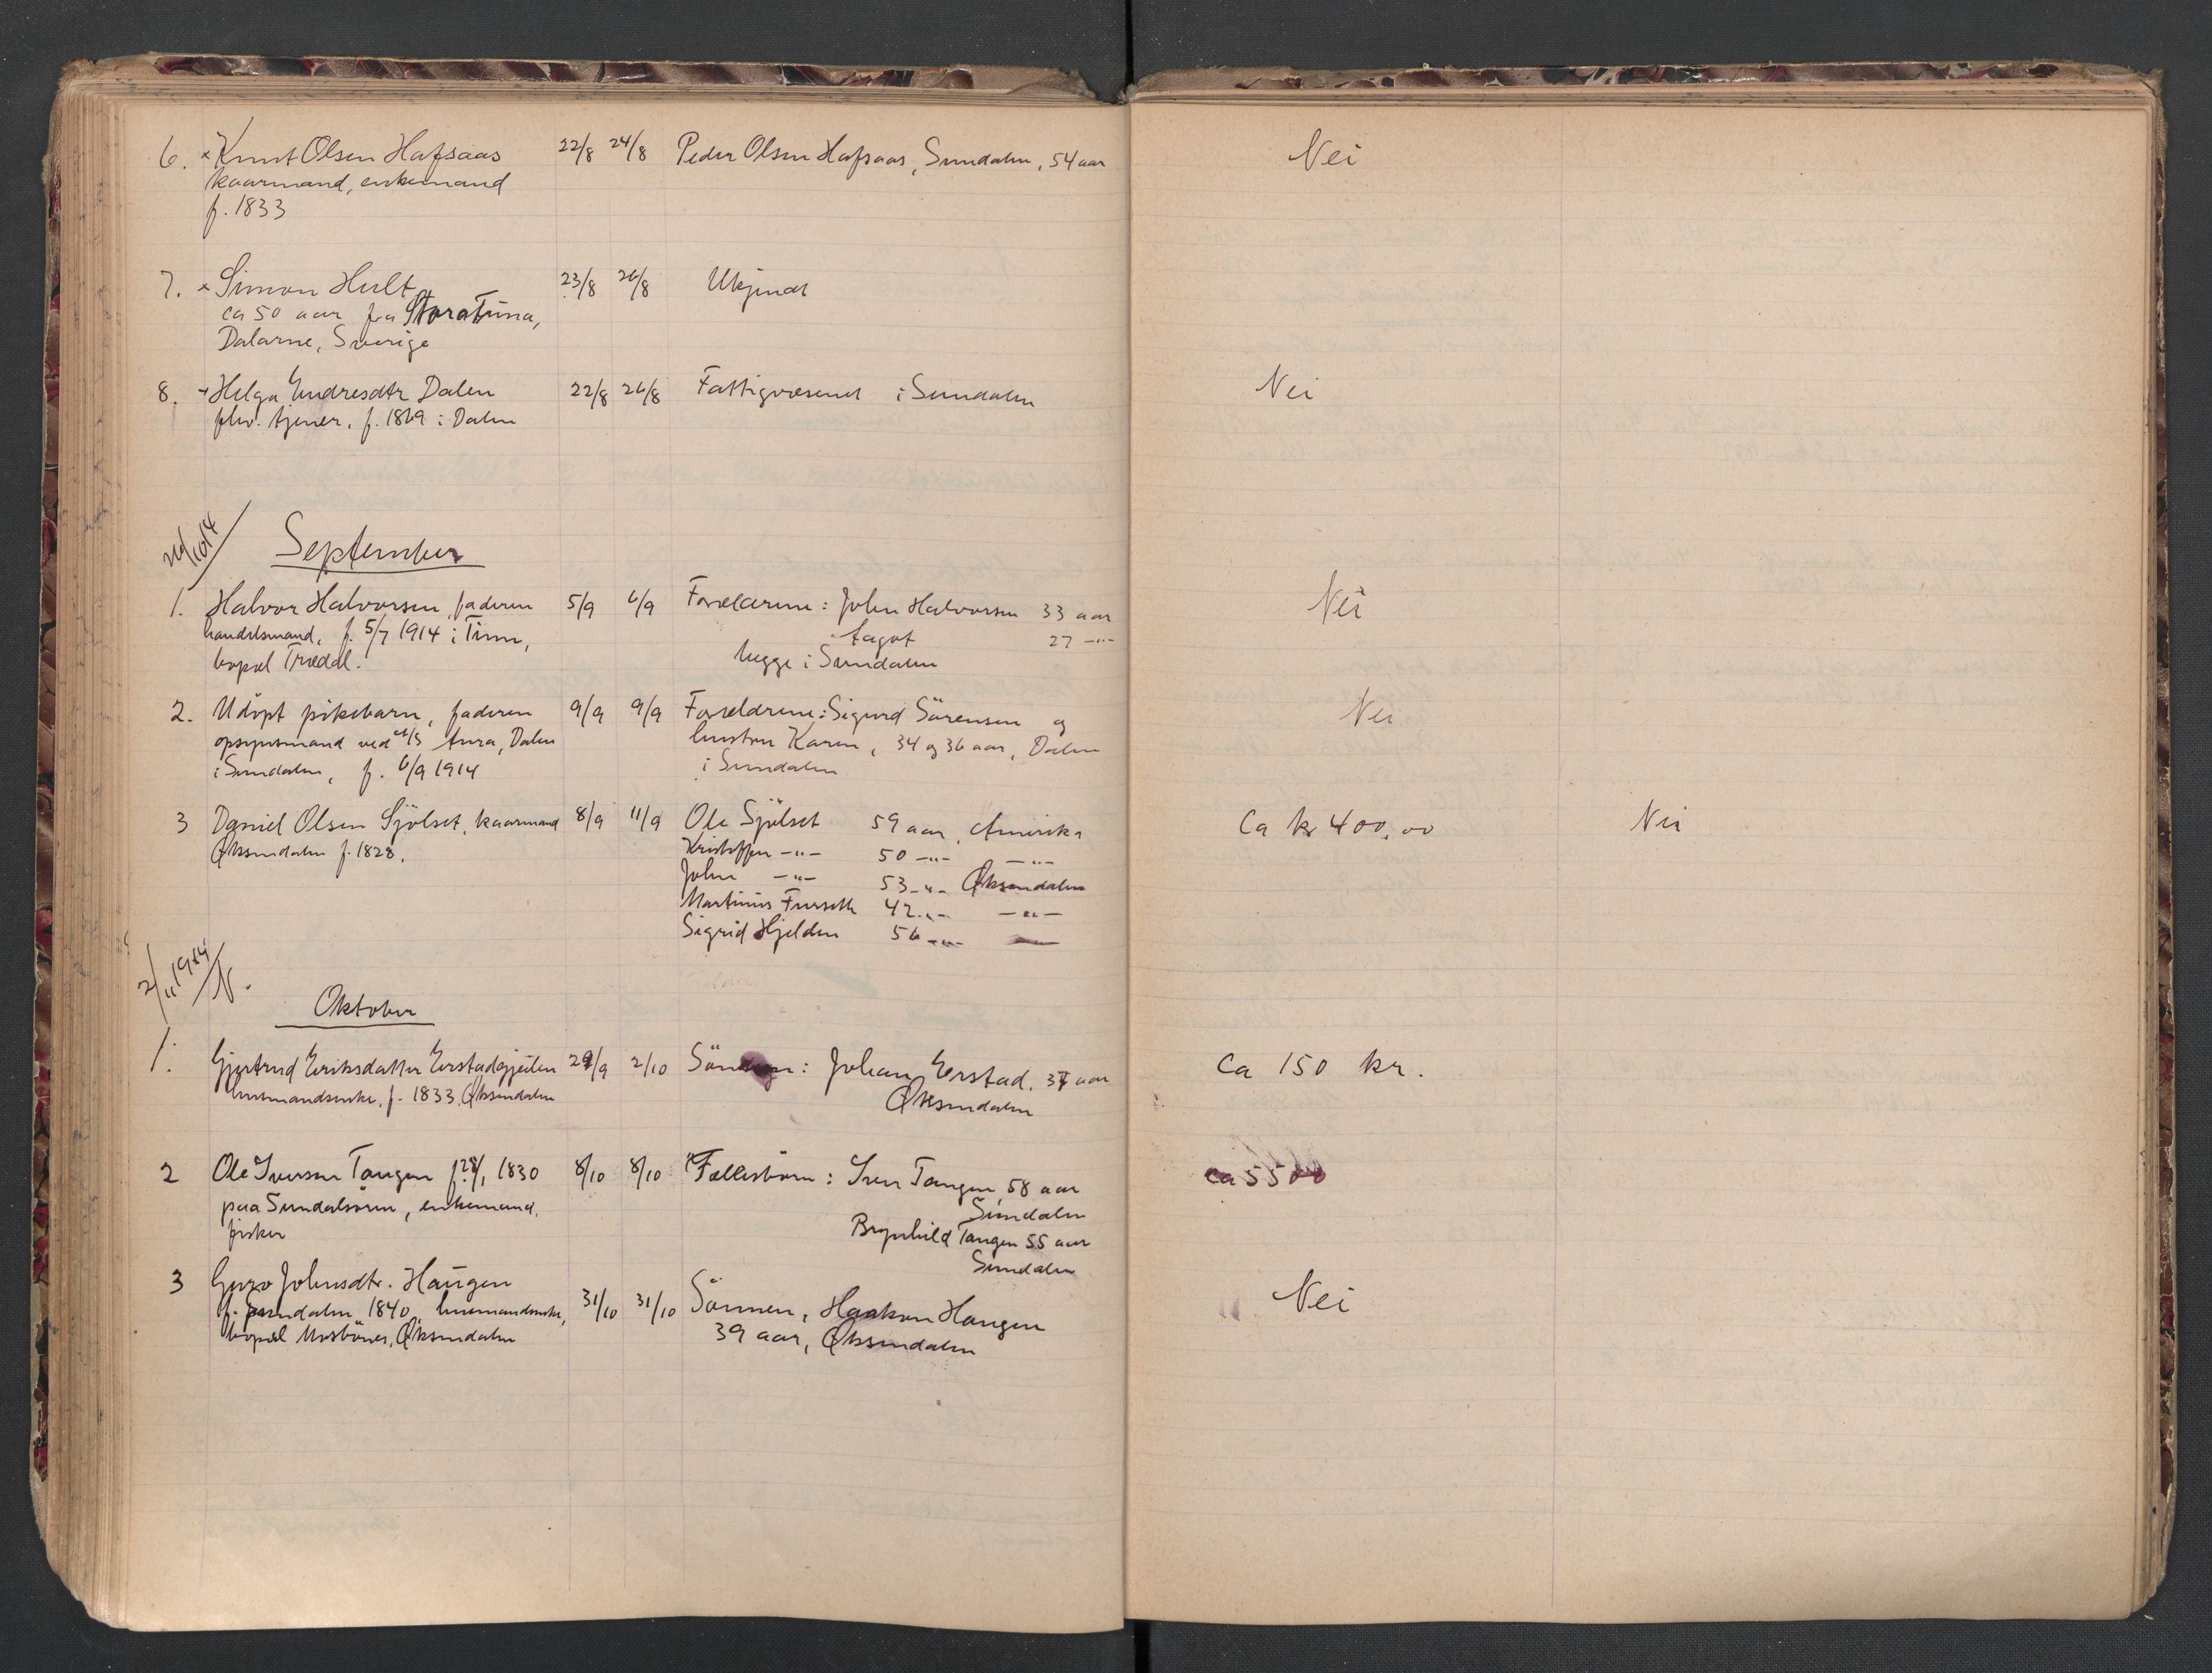 6. × Knut Olsen Hafsaas 22/8 24/8 Peder Olsen Hafsaas, Sundalen, 54 aar Nei
kaarmand, enkemand
f. 1833
7. × Simon Hult 23/8 26/8 Ukjendt
ca 50 aar fra Stora Tuna,
Dalarne, Sverige
8. + Helga Endresdtr Dalen 22/8 26/8 Fattigvæsenet i Sundalen Nei
fhv. tjener, f. 1869 i Dalen
26/10 14
September
1. Halvor Halvorsen, faderen 5/9 6/9 Forældrene: John Halvorsen 33 aar Nei
handelsmand, f. 5/7 1914 i Tinn, Aagot 27 -"-
bopæl Trædal. begge i Sundalen
2. Udöpt pikebarn, faderen 9/9 9/9 Forældrene: Sigurd Sörensen og Nei
opsynsmand ved A/S Aura, Dalen hustru Karen, 34 og 36 aar, Dalen
i Sundalen, f. 6/9 1914 i Sundalen
3 Daniel Olsen Sjölset, kaarmand 8/9 11/9 Ole Sjölset 59 aar, Amerika Ca kr 400,00 Nei
Øksendalen f. 1828. Kristoffer -"- 50 -"- -"-
John -"- 53 -"- Øksendalen
Martinus Furseth 42 -"- -"-
Sigrid Hjelden 56 -"-
2/11 1914 N.
Oktober
1. Gjertrud Eriksdatter Erstadgjeilen 29/9 2/10 Sönnen: Johan Erstad, 37 aar Ca 150 kr.
husmandsenke, f. 1833, Øksendalen Øksendalen
2 Ole Iversen Tangen f. 28/1 1830 8/10 8/10 Fællesbörn: Iver Tangen, 58 aar ca 5500
paa Sundalsören, enkemand, Sundalen
fisker Brynhild Tangen 55 aar
Sundalen
3 Guro Johnsdtr. Haugen 31/10 31/10 Sönnen, Haakon Haugen Nei
f. Sundalen 1840, husmandsenke, 39 aar, Øksendalen
bopæl Øksendalen